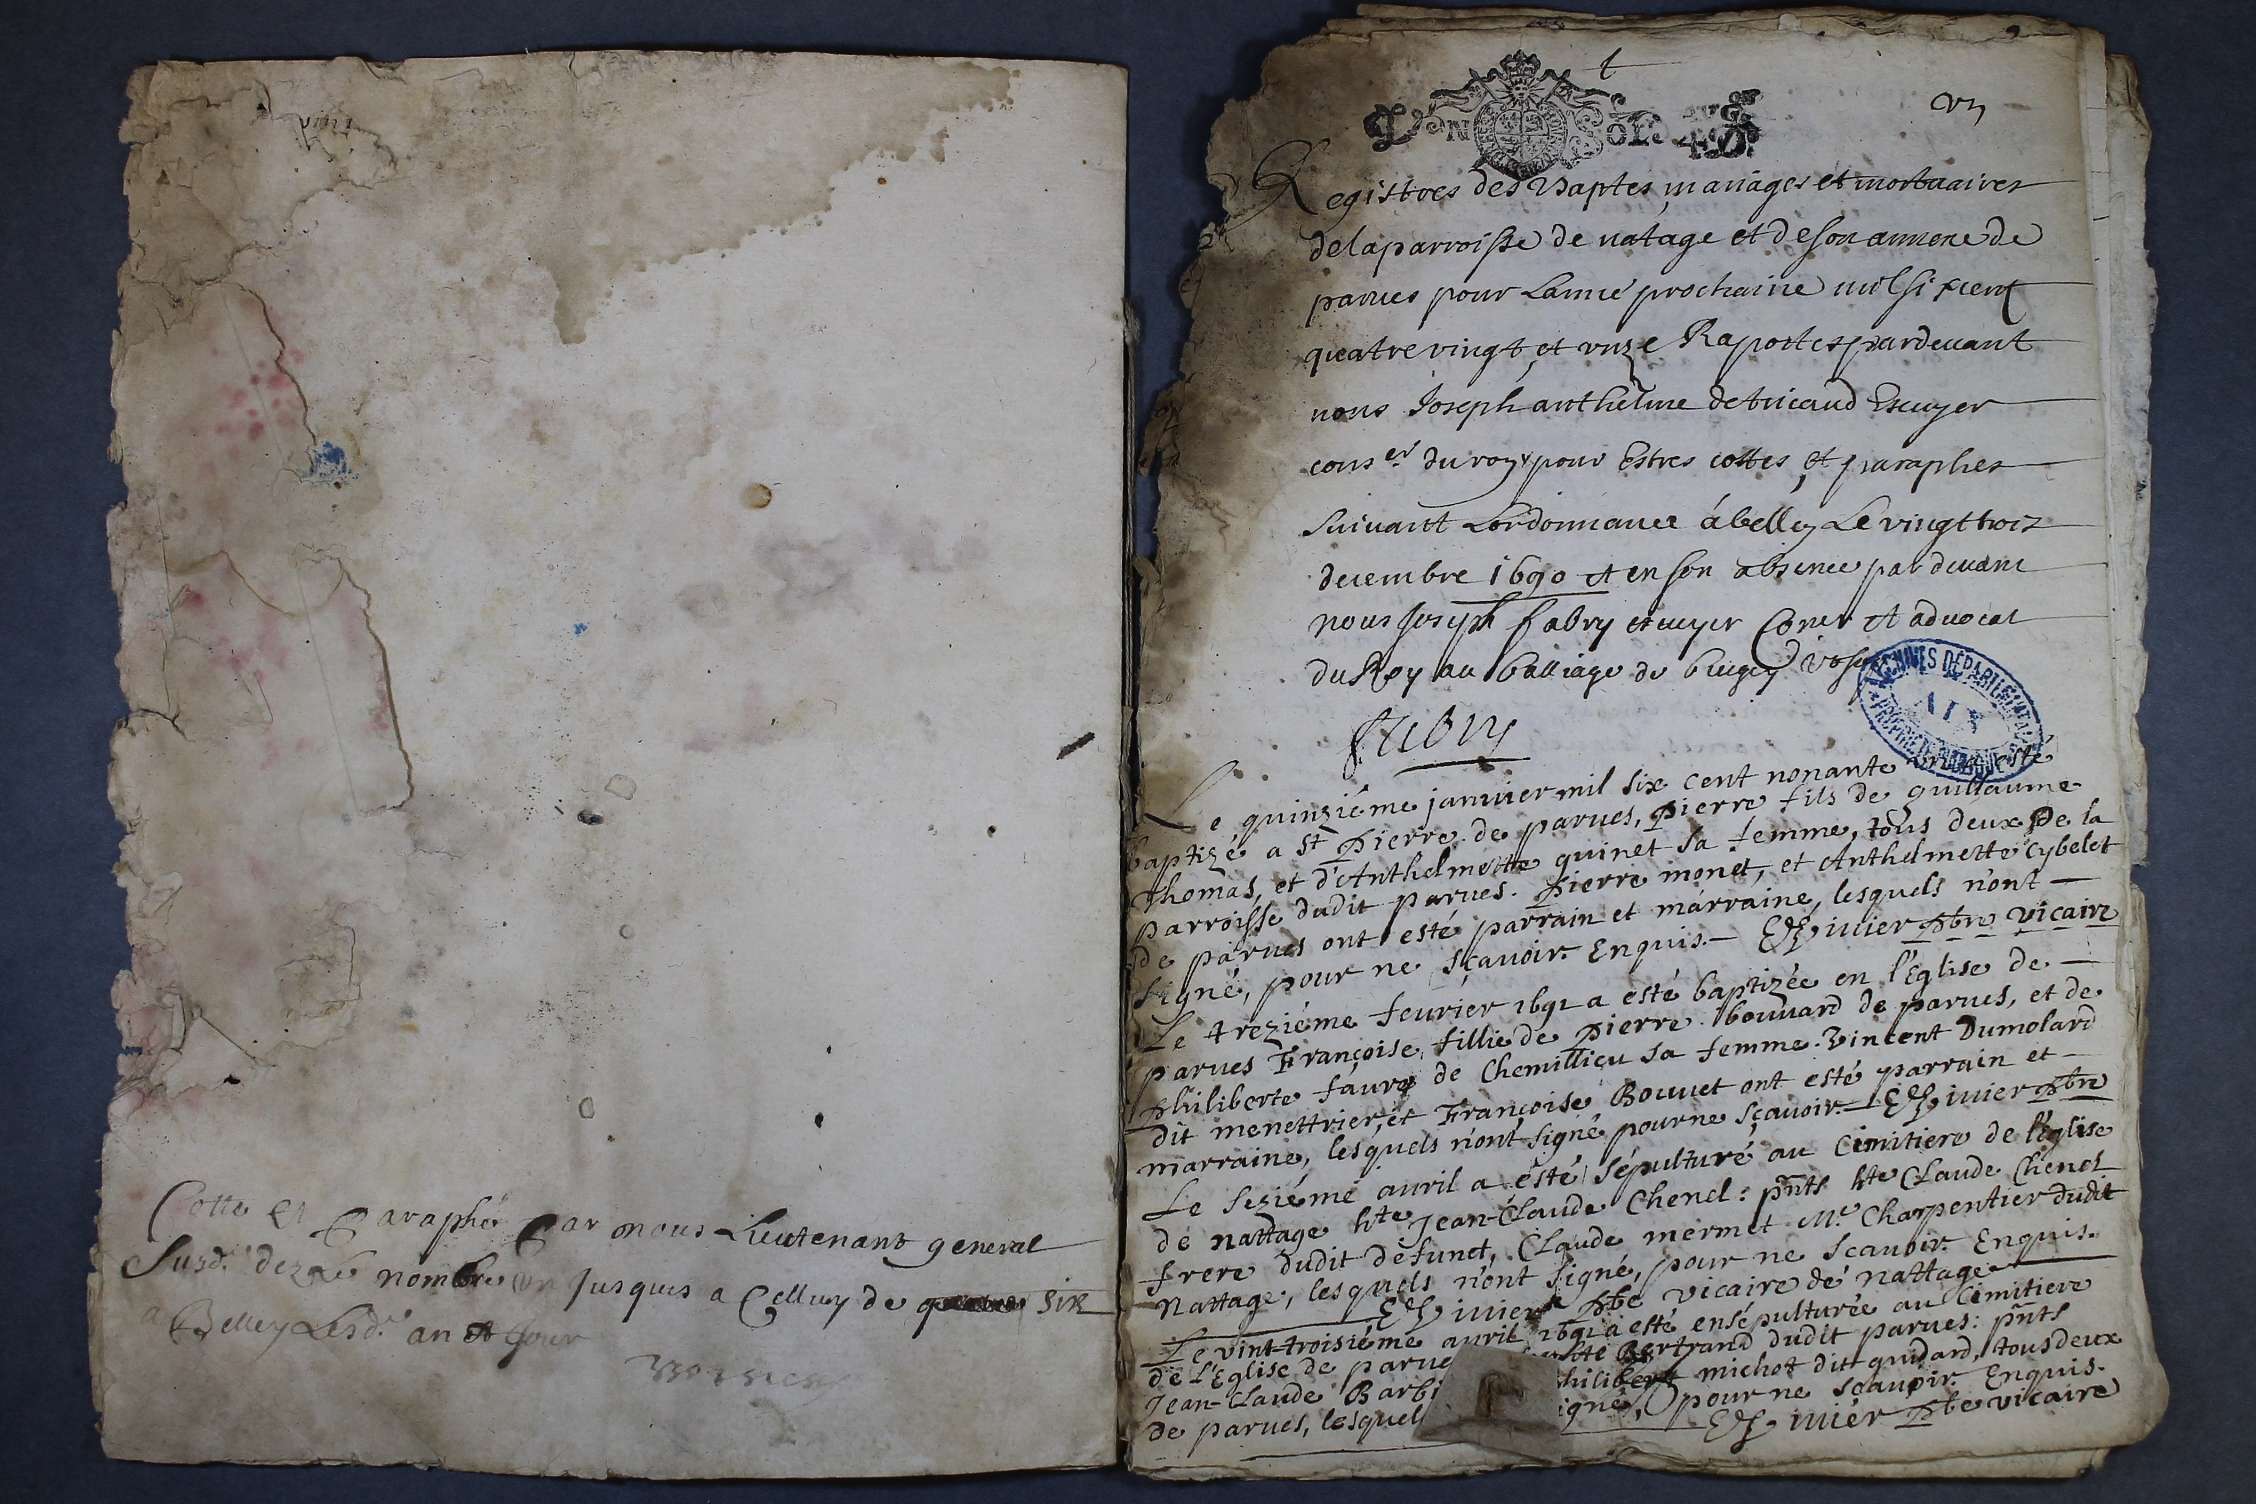 Cotte et Paraphé Par nous Lieutenant general
Susd. nombre un jusques a Celluy de six
a Belley Lesd. an et Jour
un
Registres des Baptes, mariages et mortuaires
de la parroisse de natage et de son annexe de
parues pour Lanné prochaine mil six cent
quatre vingt et vnze Raportes pardeuant
nous Joseph anthelme de tricaud Escuyer
conser. du roy pour Estres cottes et paraphes
suivant Lordonnance á belley Le vingt trois
decembre 1690 et en son absence pardeuant
nous Joseph fabry escuyer Coner et aduocat
du Roy au balliage de bugey
fabry
ARCHIVES DÉPARTEMENTALES
AIN
PROPRIÉTÉ PUBLIQUE
Le quinziéme januier mil six cent nonante esté
baptizé a St Pierre de parues, Pierre fils de guillaume
Thomas, et d'Anthelmette quinet sa femme, tous deux De la
parroisse dudit parues. Pierre monet, et Anthelmette Cybelet
de parues ont esté parrain et marraine, lesquels n'ont
signé, pour ne sçauoir Enquis. iuier pbre vicaire
Le treziéme feurier 1691 a esté baptizée en l'Eglise de
parues Françoise fillie de Pierre bouuard de parues, et de
philiberte faure de Chemillieu sa femme. Vincent Dumolard
dit menettrier, et Françoise Bouuet ont esté parrain et
marraine, lesquels n'ont signé pour ne sçauoir. iuier pbre
Le seziéme auril a esté sépulturé au Cimitiere de l'Eglise
de nattage hte Jean-Claude Chenel: pnts hte Claude Chenel
frere dudit défunct, Claude mermet Me. Charpentier dudit
Nattage, lesquels n'ont signé, pour ne scauoir Enquis.
iuier pbe vicaire de nattage
Le vint-troisiéme auril 1691 a esté ensépulturée au Cimitiere
de l'Eglise de parue Bertrand dudit parues: pnts
Jean-Claude Barbi hilibert michot dit guidard, tous deux
de parues, lesquel igné, pour ne sçauoir Enquis.
iuier pbe vicaire